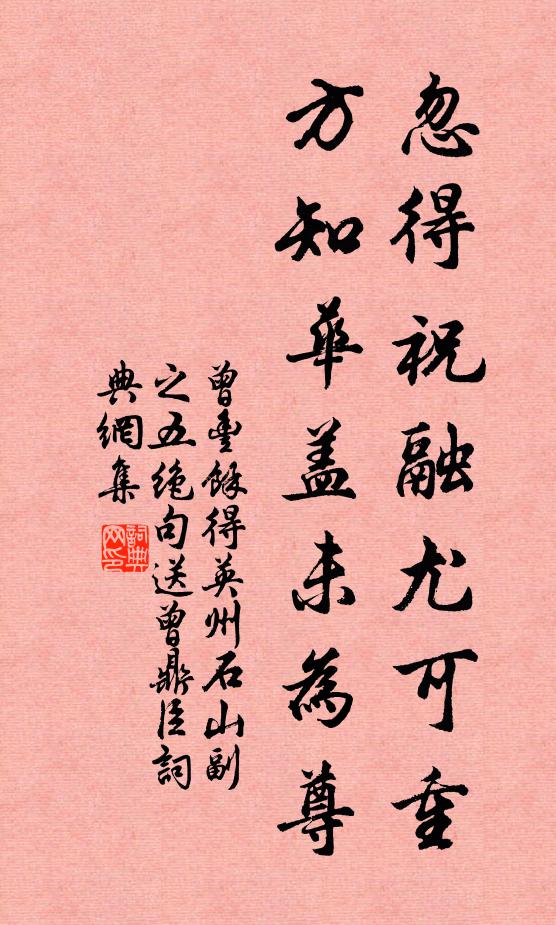 忽得祝融尤可重
方知華盖未為尊
曾豊餘得英州石山副
之五绝句送曾鼎臣詞
典網集
詞典网印